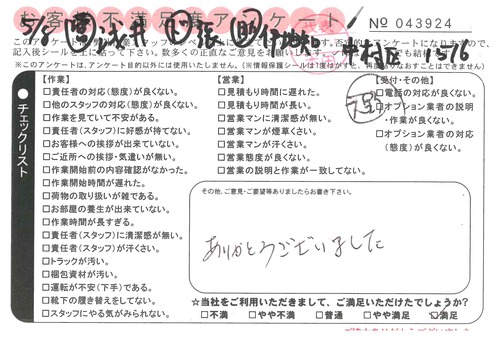 お客様不満足度アンケート
No 043924
5/8
中村区 1576
※このアンケートは、アンケート目的以外には使用いたしません。(※情報保護シールは1度はがすと、再度貼りなおすことはできません)
チェックリスト
【作業】
□責任者の対応(態度)が良くない。
□他のスタッフの対応(態度)が良くない。
□作業を見ていて不安がある。
□責任者(スタッフ)に好感が持てない。
□お客様への挨拶が出来ていない。
□ご近所への挨拶・気遣いが無い。
□作業開始前の内容確認がなかった。
□作業開始時間が遅れた。
□荷物の取り扱いが雑である。
□お部屋の養生が出来ていない。
□作業時間が長すぎる。
□責任者(スタッフ)に清潔感が無い。
□責任者(スタッフ)が汗くさい。
□トラックが汚い。
□梱包資材が汚い。
□運転が不安(下手)である。
□靴下の履き替えをしてない。
□スタッフにやる気がみられない。
【営業】
□見積もり時間に遅れた。
□見積もり時間が長い。
□営業マンに清潔感が無い。
□営業マンが煙草くさい。
□営業マンが汗くさい。
□営業態度が良くない。
□営業の説明と作業が一致してない。
【受付・その他】
□電話の対応が良くない。
□オプション業者の説明・作業が良くない。
□オプション業者の対応(態度)が良くない。
その他、ご意見・ご要望等ありましたらお書き下さい。
ありがとうございました
☆当社をご利用いただきまして、ご満足いただけたでしょうか?
□不満 □やや不満 □普通 □やや満足 ☑満足